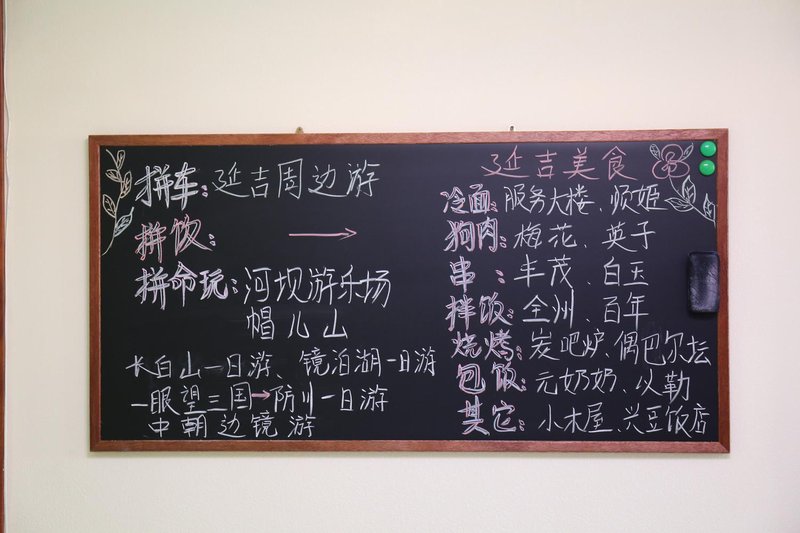 拼车：延吉周边游
拼饮： →
拼命玩：河坝游乐场
帽儿山
长白山一日游、镜泊湖一日游
一眼望三国→防川一日游
中朝边镜游
延吉美食
冷面：服务大楼、顺姬
狗肉：梅花、英子
串：丰茂、白玉
拌饭：全州、百年
烧烤：炭吧炉、偶巴尔坛
包饭：元奶奶、义勒
其它：小木屋、兴豆饭店